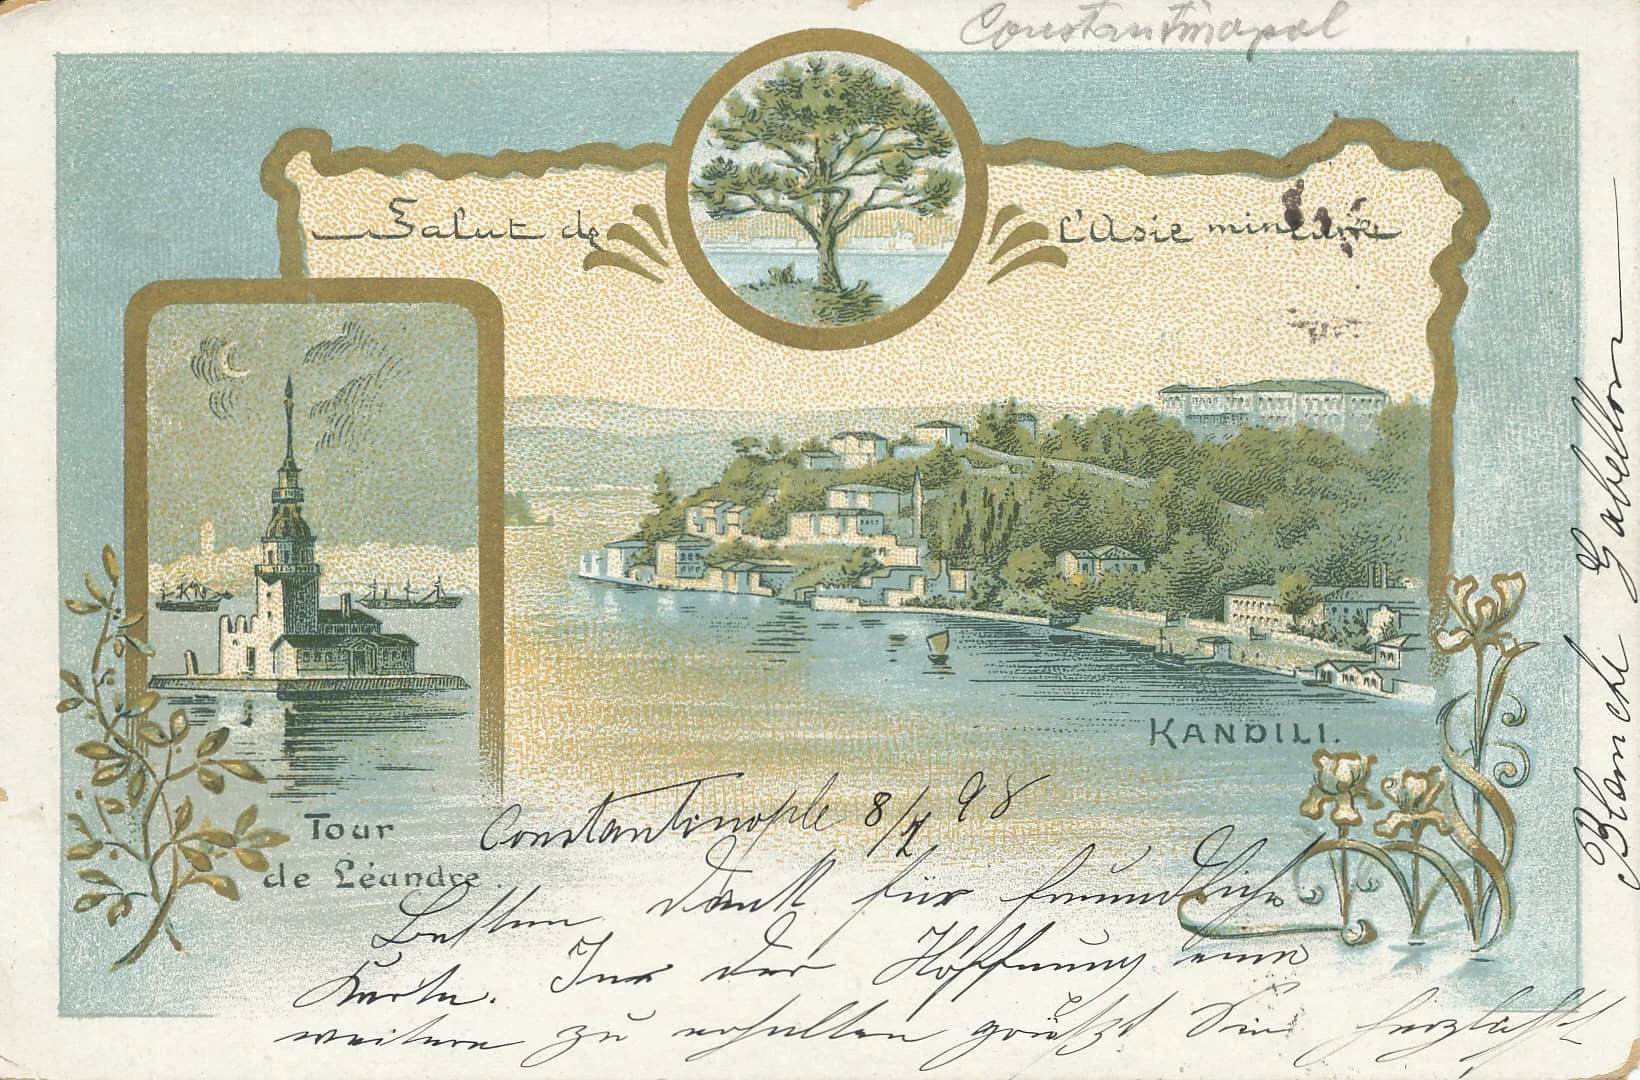 Constantinopol
Salut de L'Asie mineure
KANDILI.
Tour
de Léandre.
Constantinople 8/7 98
Besten Dank für freundliche
Karte. In der Hoffnung eine
weitere zu erhalten grüßt Sie herzlichst
Blanche Gabellon